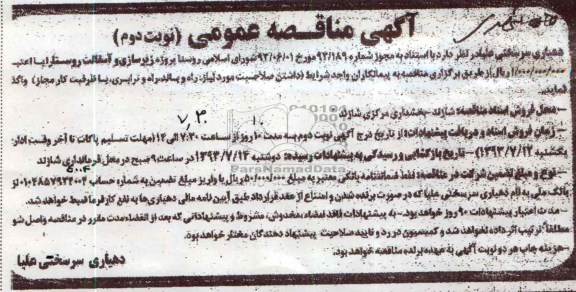 آگهی مناقصه عمومی (نوبت دوم)
دهیاری سرسختی علیا در نظر دارد با استناد به مجوز شماره ۹۳/۱۸۹ مورخ ۹۳/۰۶/۰۱ شورای اسلامی روستا پروژه زیرسازی و آسفالت روستا را با اعتبار
ریال از طریق برگزاری مناقصه به پیمانکاران واجد شرایط (داشتن صلاحیت مورد نیاز، راه و باند، راه و ترابری، با ظرفیت کار مجاز) واگذار
نماید.
-محل فروش اسناد مناقصه: شازند -بخشداری مرکزی شازند
- زمان فروش اسناد و دریافت پیشنهادات: از تاریخ درج آگهی نوبت دوم به مدت ۱۰ روز از ساعت ۷:۳۰ الی ۱۴ (مهلت تسلیم پاکات تا آخر وقت اداری
یکشنبه ۱۳۹۳/۷/۱۳) - تاریخ بازگشایی و رسیدگی به پیشنهادات رسیده: دوشنبه ۱۳۹۳/۷/۱۴ در ساعت ۹ صبح در محل فرمانداری شازند
- نوع و مبلغ تضمین شرکت در مناقصه: نقد، ضمانتنامه بانکی معتبر به مبلغ ریال یا واریز مبلغ تضمین به شماره حساب
بانک ملی به نام دهیاری سرسختی علیا که در صورت برنده شدن و امتناع از عقد قرارداد طبق آیین نامه مالی دهیاری‌ها به نفع کارفرما ضبط خواهد شد.
- مدت اعتبار پیشنهادات ۹۰ روز خواهد بود. - به پیشنهادات فاقد امضاء، مخدوش، مشروط و پیشنهاداتی که بعد از انقضاء مدت مقرر در مناقصه واصل شود
مطلقاً ترتیب اثر داده نخواهد شد و کمیسیون در رد و تایید صلاحیت پیشنهاد دهندگان مختار خواهد بود.
-هزینه چاپ هر دو نوبت آگهی به عهده برنده مناقصه خواهد بود.
دهیاری سرسختی علیا
ParsNamadData